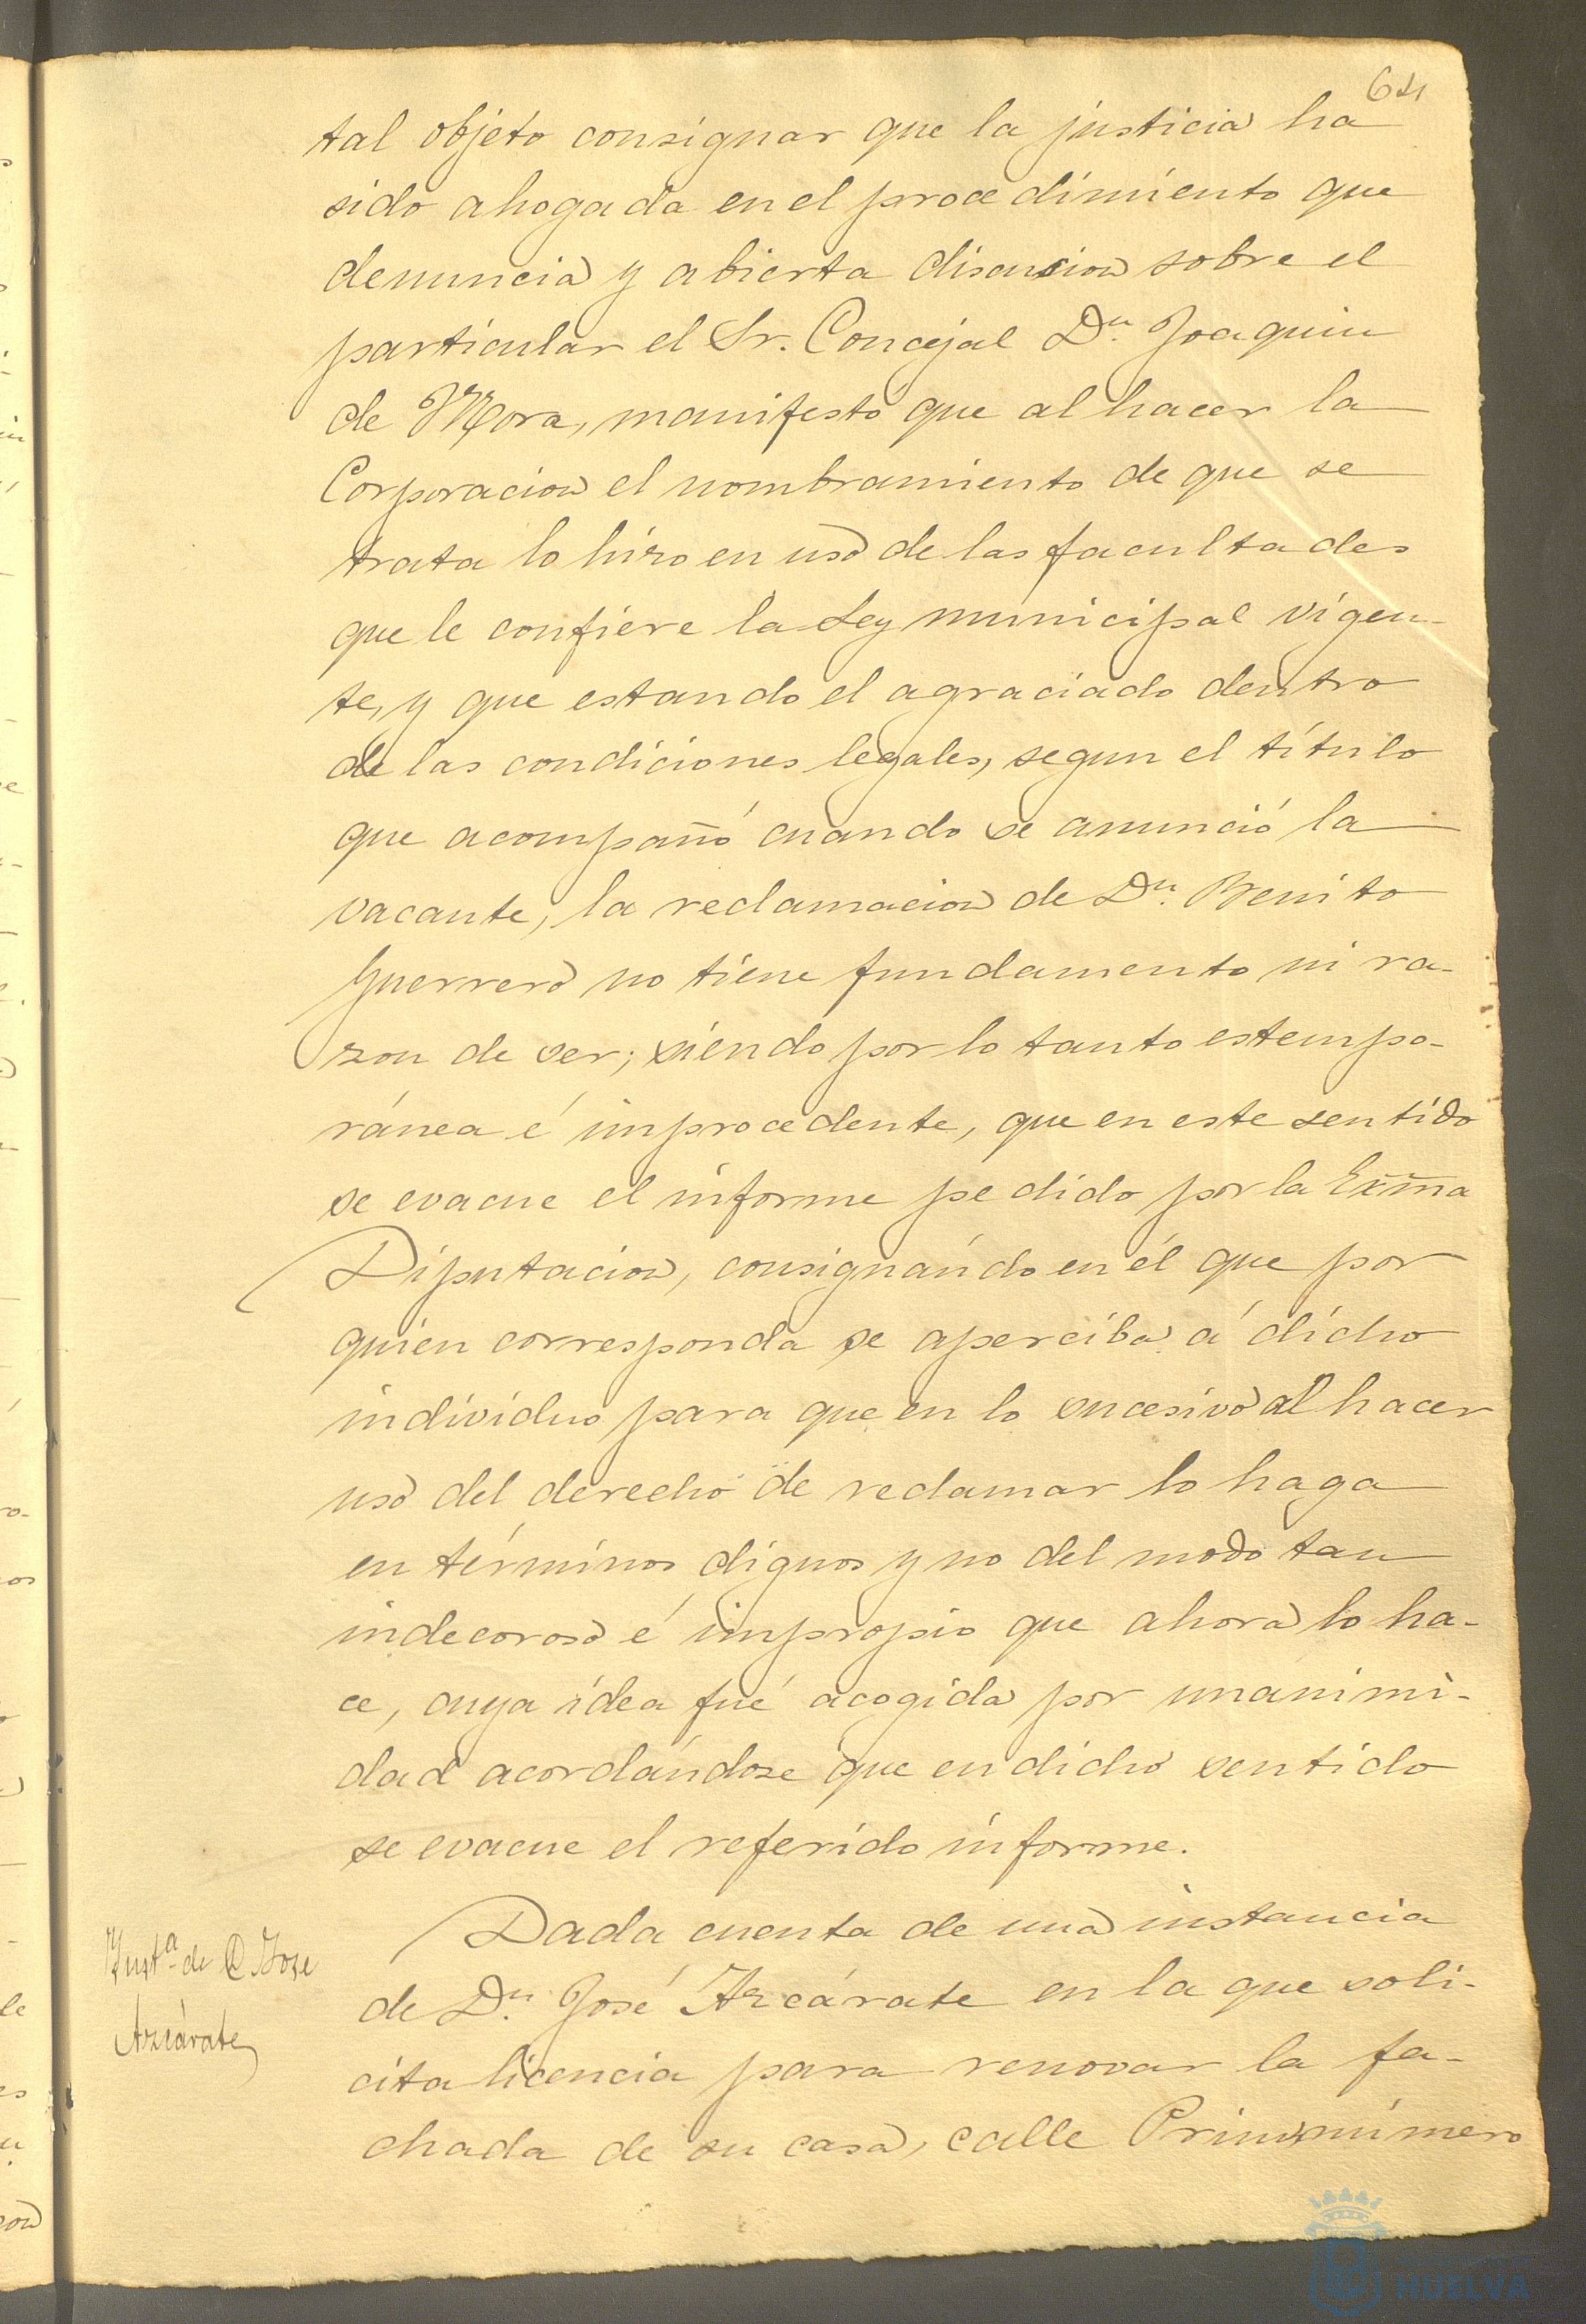 64
tal objeto consignar que la justicia ha
sido ahogada en el procedimiento que
denuncia y abierta discusion sobre el
particular el Sr. Concejal Dn. Joaquin
de Mora, manifestó que al hacer la
Corporacion el nombramiento de que se
trata lo hizo en uso de las facultades
que le confiere la Ley municipal vigen-
te, y que estando el agraciado dentro
de las condiciones legales, segun el título
que acompañó cuando se anunció la
vacante, la reclamacion de Dn. Benito
Guerrero no tiene fundamento ni ra-
zon de ser; siendo por lo tanto estempo-
ránea é improcedente, que en este sentido
se evacue el informe pedido por la Exma
Diputacion, consignándo en él que por
quien corresponda se aperciba á dicho
individuo para que en lo sucesivo al hacer
uso del derecho de reclamar lo haga
en términos dignos y no del modo tan
indecoroso é impropio que ahora lo ha-
ce, cuya idea fué acogida por unanimi-
dad acordándose que en dicho sentido
se evacue el referido informe.
Dada cuenta de una instancia
Insta. de D. Jose
Azcárate
de Dn. José Azcárate en la que soli-
cita licencia para renovar la fa-
chada de su casa, calle Prim número
HUELVA